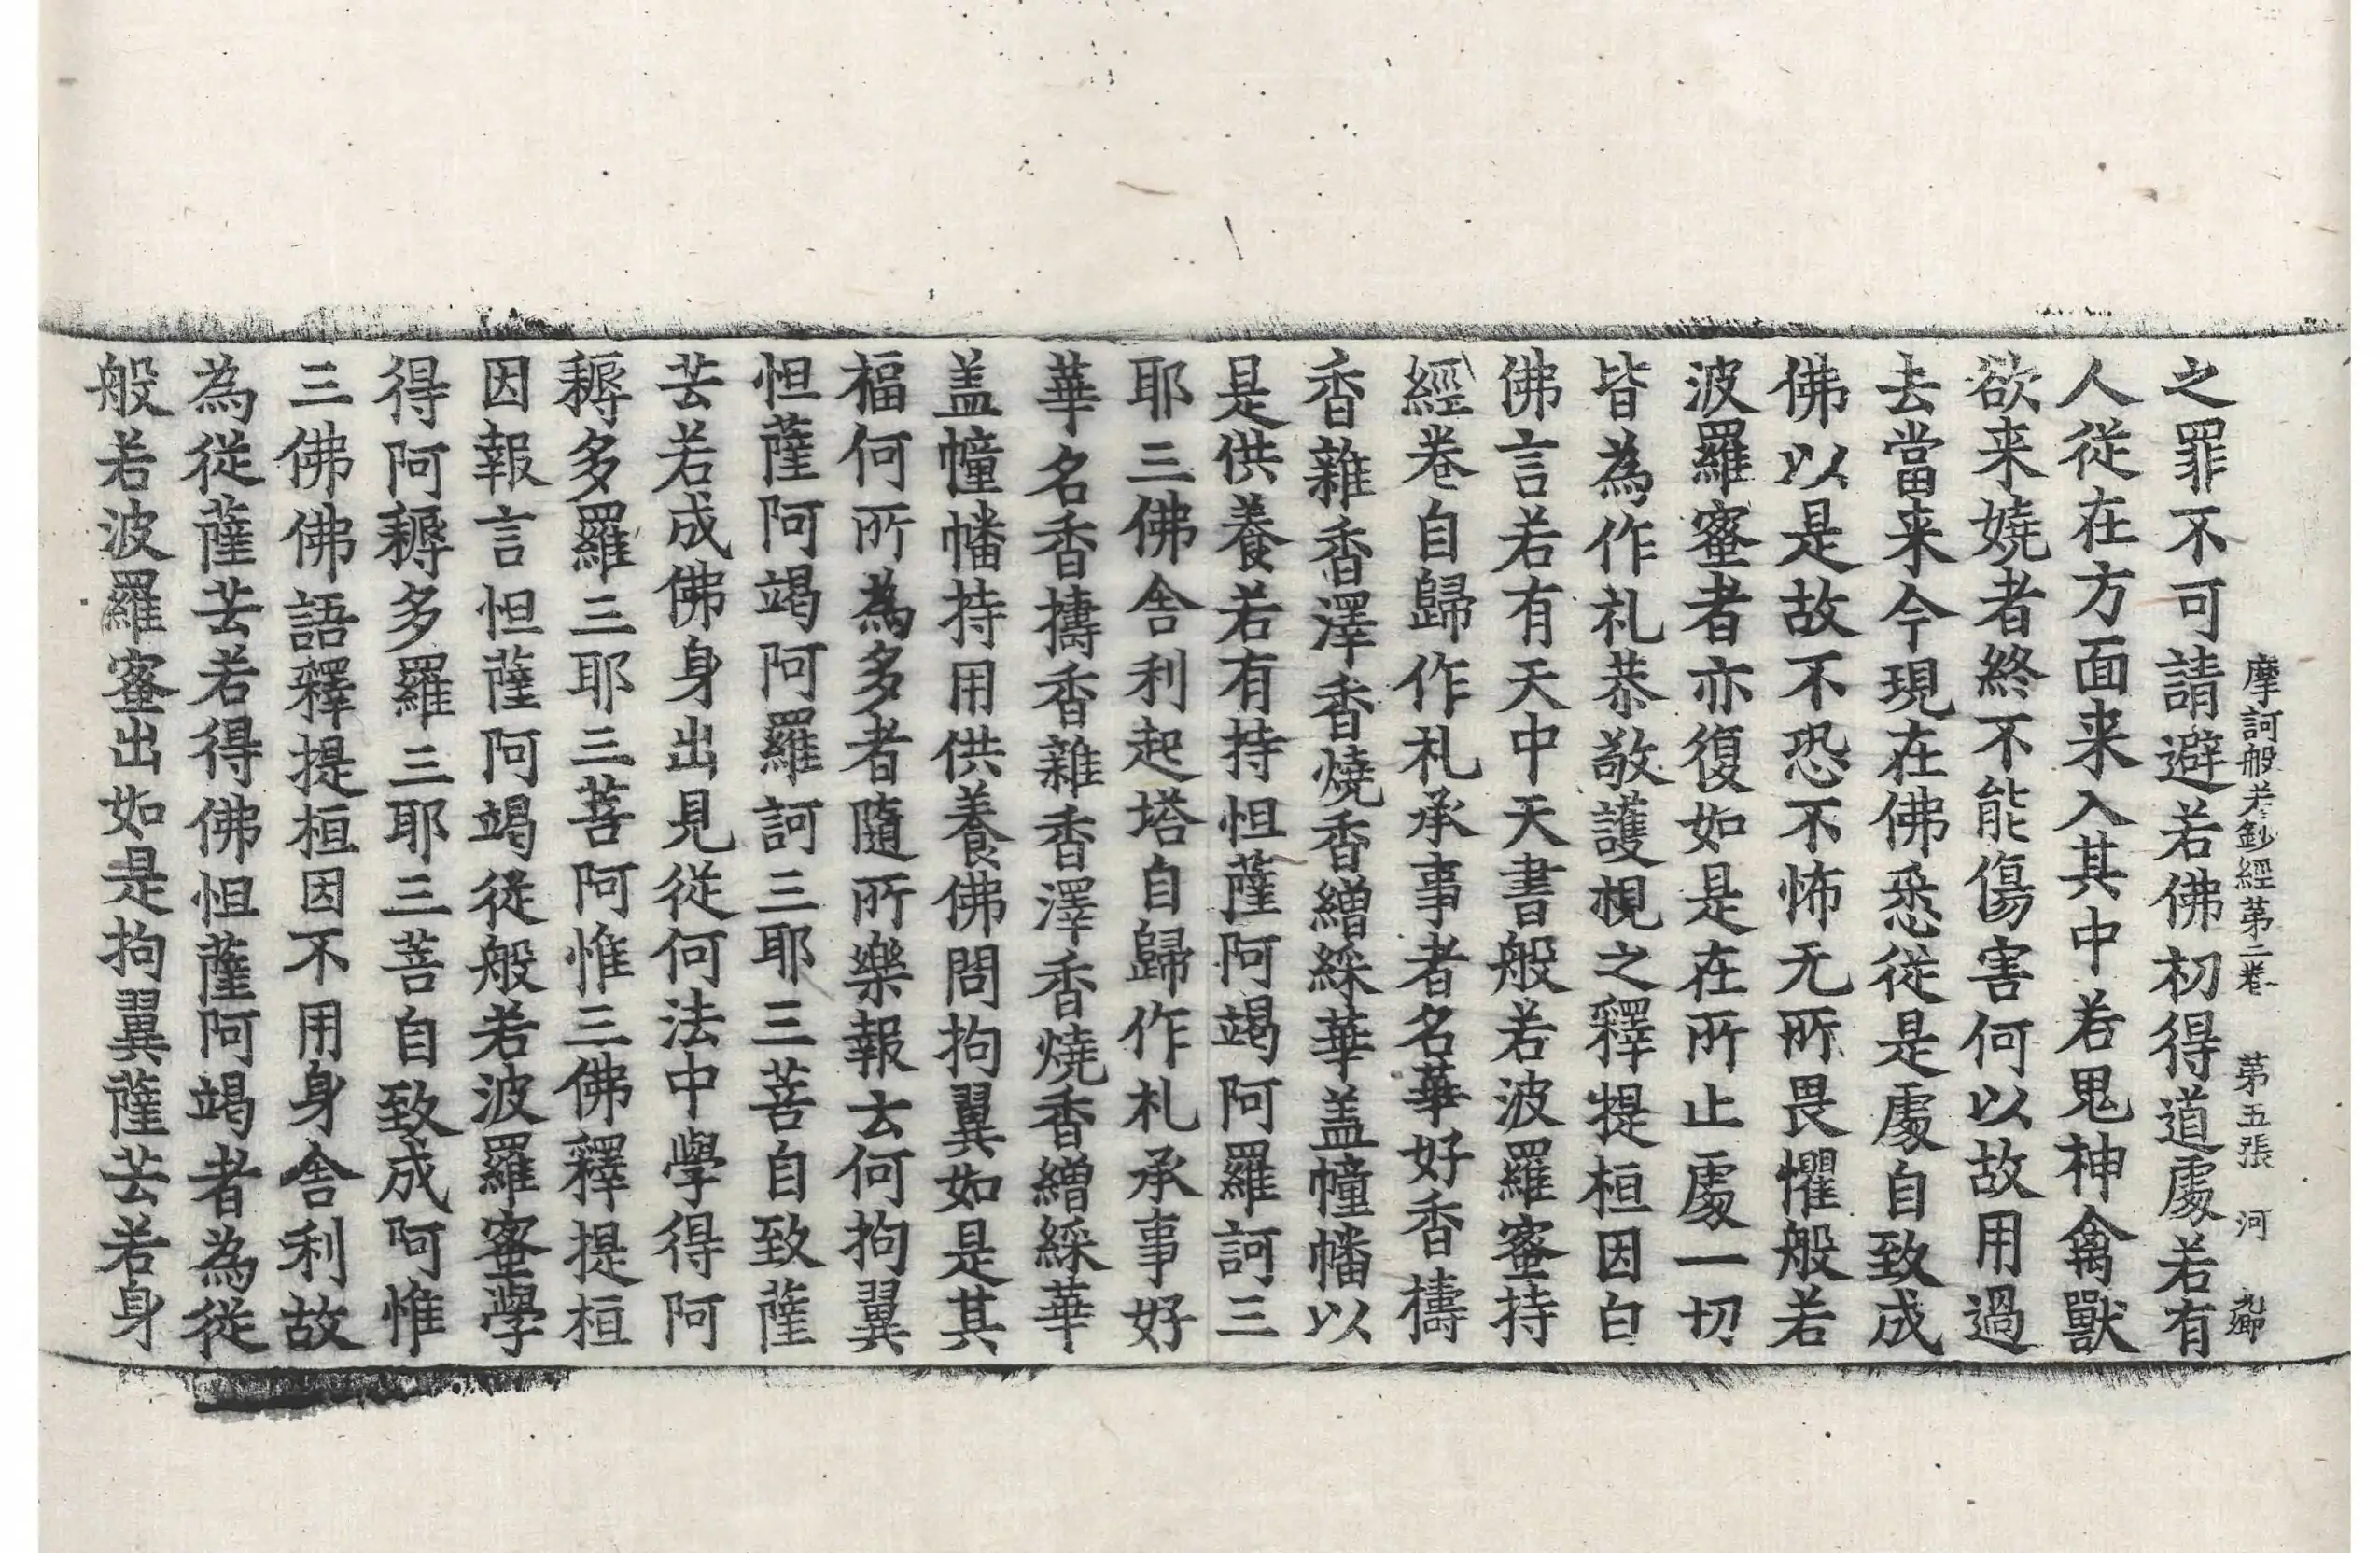 摩訶般若鈔經第二卷　第五張　河
之罪不可請避若佛初得道處若有
人從在方面来入其中若鬼神禽獸
欲来嬈者終不能傷害何以故用過
去當来今現在佛悉從是處自致成
佛以是故不恐不怖无所畏懼般若
波羅蜜者亦復如是在所止處一切
皆為作礼恭敬護視之釋提桓因白
佛言若有天中天書般若波羅蜜持
經卷自歸作礼承事者名華好香擣
香雜香澤香燒香繒綵華盖幢幡以
是供養若有持怛薩阿竭阿羅訶三
耶三佛舍利起塔自歸作礼承事好
華名香擣香雜香澤香燒香繒綵華
盖幢幡持用供養佛問拘翼如是其
福何所為多者隨所樂報去何拘翼
怛薩阿竭阿羅訶三耶三菩自致薩
芸若成佛身出見從何法中學得阿
耨多羅三耶三菩阿惟三佛釋提桓
因報言怛薩阿竭從般若波羅蜜學
得阿耨多羅三耶三菩自致成阿惟
三佛佛語釋提桓因不用身舍利故
為從薩芸若得佛怛薩阿竭者為從
般若波羅蜜出如是拘翼薩芸若身